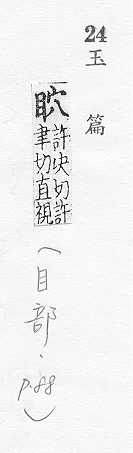 24
玉篇
許决切許
聿切直視
(目部, p.88)